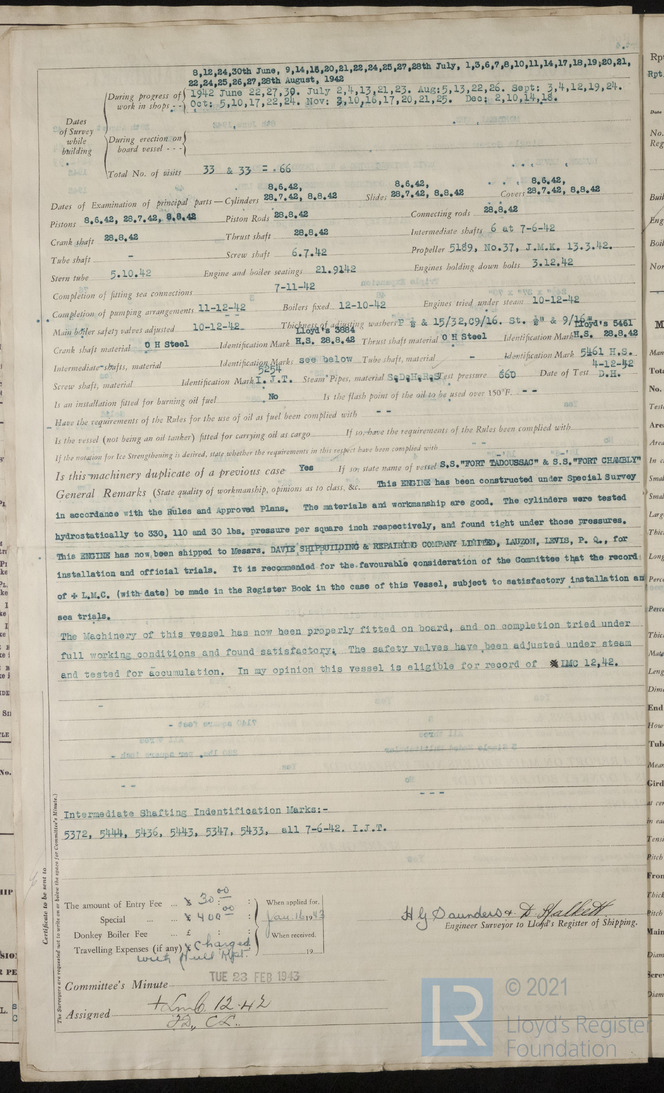 8,12,24,30th June, 9,14,18,20,21,22,24,25,27,28th July, 1,3,6,7,8,10,11,14,17,18,19,20,21,
22,24,25,26,27,28th August, 1942
Dates of Survey while building
During progress of work in shops - - 1942 June 22,27,30. July 2,4,13,21,23. Aug:5,13,22,26. Sept: 3,4,12,19,24.
Oct: 5,10,17,22,24. Nov: 3,10,16,17,20,21,25. Dec: 2,10,14,18.
During erection on board vessel - - -
Total No. of visits 33 & 33 = 66
Dates of Examination of principal parts—Cylinders 8.6.42, 28.7.42, 8.8.42 Slides 8.6.42, 28.7.42, 8.8.42 Covers 8.6.42, 28.7.42, 8.8.42
Pistons 8.6.42, 28.7.42, 8.8.42 Piston Rods 28.8.42 Connecting rods 28.8.42
Crank shaft 28.8.42 Thrust shaft 28.8.42 Intermediate shafts 6 at 7-6-42
Tube shaft - Screw shaft 6.7.42 Propeller 5189, No.37, J.M.K. 13.3.42.
Stern tube 5.10.42 Engine and boiler seatings 21.9142 Engines holding down bolts 3.12.42
Completion of fitting sea connections 7-11-42
Completion of pumping arrangements 11-12-42 Boilers fixed 12-10-42 Engines tried under steam 10-12-42
Main boiler safety valves adjusted 10-12-42 Thickness of adjusting washers P ½ & 15/32,C9/16. St. ½" & 9/16"
Crank shaft material O H Steel Identification Mark Lloyd's 3684 H.S. 28.8.42 Thrust shaft material O H Steel Identification Mark Lloyd's 5461 H.S. 28.8.42
Intermediate shafts, material Identification Marks see below Tube shaft, material - Identification Mark 5461 H.S.
Screw shaft, material Identification Mark 5254 I.J.T. Steam Pipes, material S.D.H.R.S Test pressure 660 Date of Test 4-12-42 D.H.
Is an installation fitted for burning oil fuel No Is the flash point of the oil to be used over 150°F. - -
Have the requirements of the Rules for the use of oil as fuel been complied with - -
Is the vessel (not being an oil tanker) fitted for carrying oil as cargo If so, have the requirements of the Rules been complied with
If the notation for Ice Strengthening is desired, state whether the requirements in this respect have been complied with
Is this machinery duplicate of a previous case Yes If so, state name of vessel S.S."FORT TADOUSSAC" & S.S."FORT CHAMBLY"
General Remarks (State quality of workmanship, opinions as to class, &c. This ENGINE has been constructed under Special Survey
in accordance with the Rules and Approved Plans. The materials and workmanship are good. The cylinders were tested
hydrostatically to 330, 110 and 30 lbs. pressure per square inch respectively, and found tight under those pressures.
This ENGINE has now been shipped to Messrs. DAVIE SHIPBUILDING & REPAIRING COMPANY LIMITED, LAUZON, LEVIS, P. Q., for
installation and official trials. It is recommended for the favourable consideration of the Committee that the record
of + L.M.C. (with date) be made in the Register Book in the case of this Vessel, subject to satisfactory installation an
sea trials.
The Machinery of this vessel has now been properly fitted on board, and on completion tried under
full working conditions and found satisfactory. The safety valves have been adjusted under steam
and tested for accumulation. In my opinion this vessel is eligible for record of LMC 12,42.
Intermediate Shafting Indentification Marks:-
5372, 5444, 5436, 5443, 5347, 5433, all 7-6-42. I.J.T.
Certificate to be sent to
The Surveyors are requested not to write on or below the space for Committee's Minute.
The amount of Entry Fee ... $ 30.00 : When applied for,
Special ... $ 400.00 : Jan. 16 1943
Donkey Boiler Fee ... £ : : When received,
Travelling Expenses (if any) Charged : 19
with Hull Rpt.
H G Saunders & D Halkett
Engineer Surveyor to Lloyd's Register of Shipping.
TUE 23 FEB 1943
Committee's Minute
Assigned + Lmb. 12.42
C.L.
© 2021
LR
Lloyd's Register
Foundation